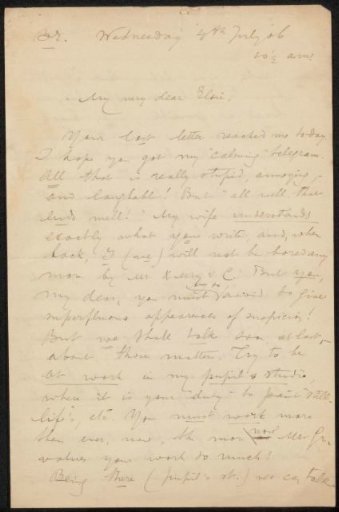 Wednesday 4th July 06
10½ am.
My very dear Elsie,
Your last letter reached me today
I hope you got my "calming" telegram.
All that is really stupid, annoying,
and laughable! But "all well that
ends well!" My wife understands
exactly what you write and, when
back, I (we) will not be bored any
more by Mr & Co. But you,
my dear, you must avoid to give
superfluous appearances of suspicion!
But we shall talk soon at last,
about those matters. Try to be
at work in my pupil's studio,
where it is your duty to paint still
life's, etc. You must work more
than ever, now, the more now Mr
values your work so much!
Being there (pupil's st.) we can talk